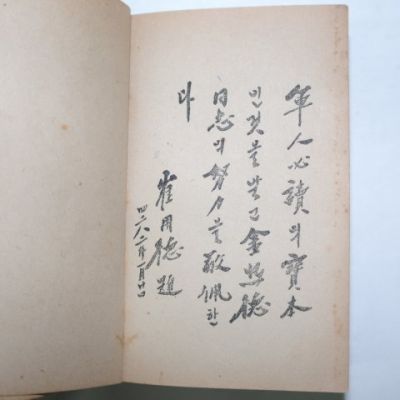 軍人必讀의寶本
인것을알고金熙德
同志의努力을敬佩한
다
崔用德題
四二八二年一月廿日